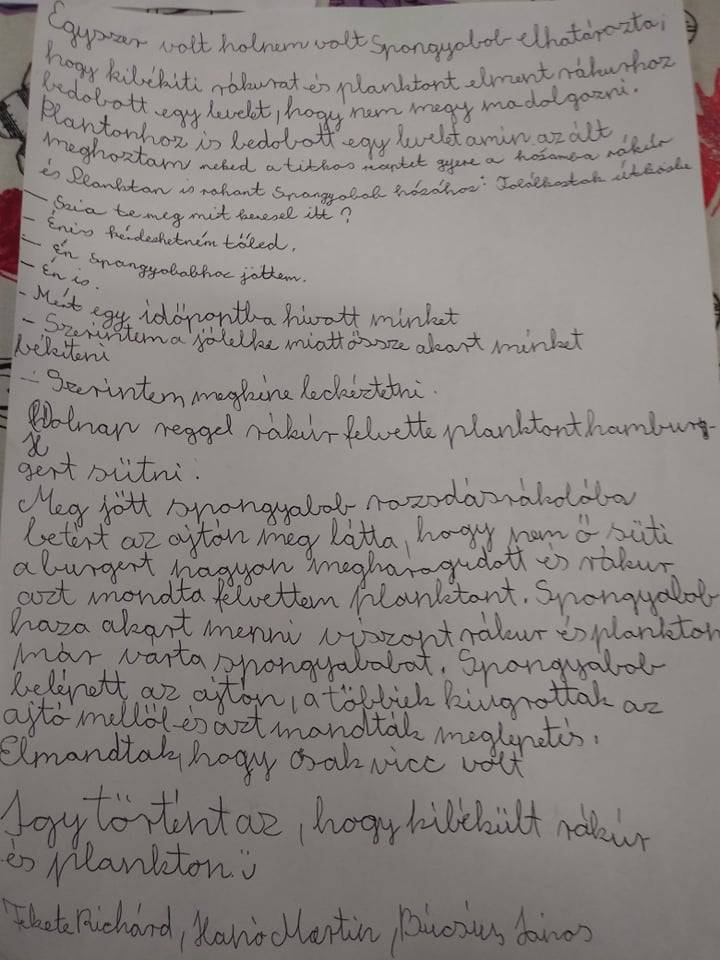 Egyszer volt holnem volt Spongyabob elhatározta,
hogy kibékíti rákurat és planktont elment rákurhoz
bedobott egy levelet, hogy nem megy ma dolgozni.
Plantonhoz is bedobott egy levelet amin az ált
meghoztam neked a titkos reptet gyere a házamba rákúr
és Planktan is rohant Spongyabob házához: Találkoztak útközbe
- Szia te meg mit keresel itt?
- Énis kérdezhetném tőled.
- én spangyobabhoz jöttem.
- Én is.
- Mért egy időpontba hívott minket
- Szerintem a jólelke miatt össze akart minket
békíteni
- Szerintem megkéne leckéztetni.
Holnap reggel rákúr felvette planktont hambur-
gert sütni.
Meg jött spongyabob rozsdásrákolóba
betért az ajtón meg látta, hogy nem ő süti
a burgert nagyon megharagudott és rákur
azt mondta felvettem planktont. Spongyabob
haza akart menni viszont rákur és plankton
már várta spongyabobat. Spongyabob
belépett az ajtón, a többiek kiugrottak az
ajtó mellől és azt mondták meglepetés.
Elmondtak, hogy csak vicc volt
Igy történt az, hogy kibékült rákúr
és plankton. ü
Fekete Richárd, Hajó Martin, János